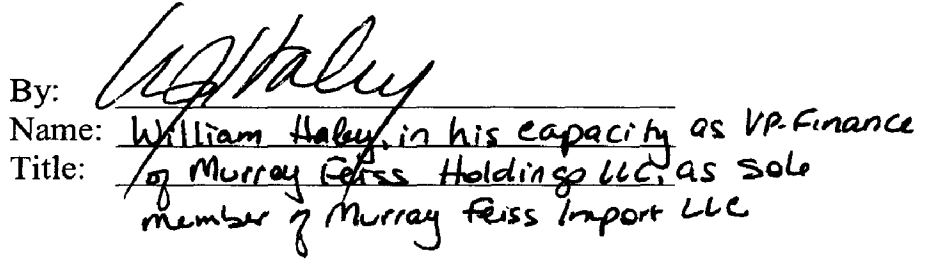 By: WHaley
Name: William Haley, in his capacity as VP-Finance
Title: of Murray Feiss Holdings LLC, as sole
member of Murray Feiss Import LLC